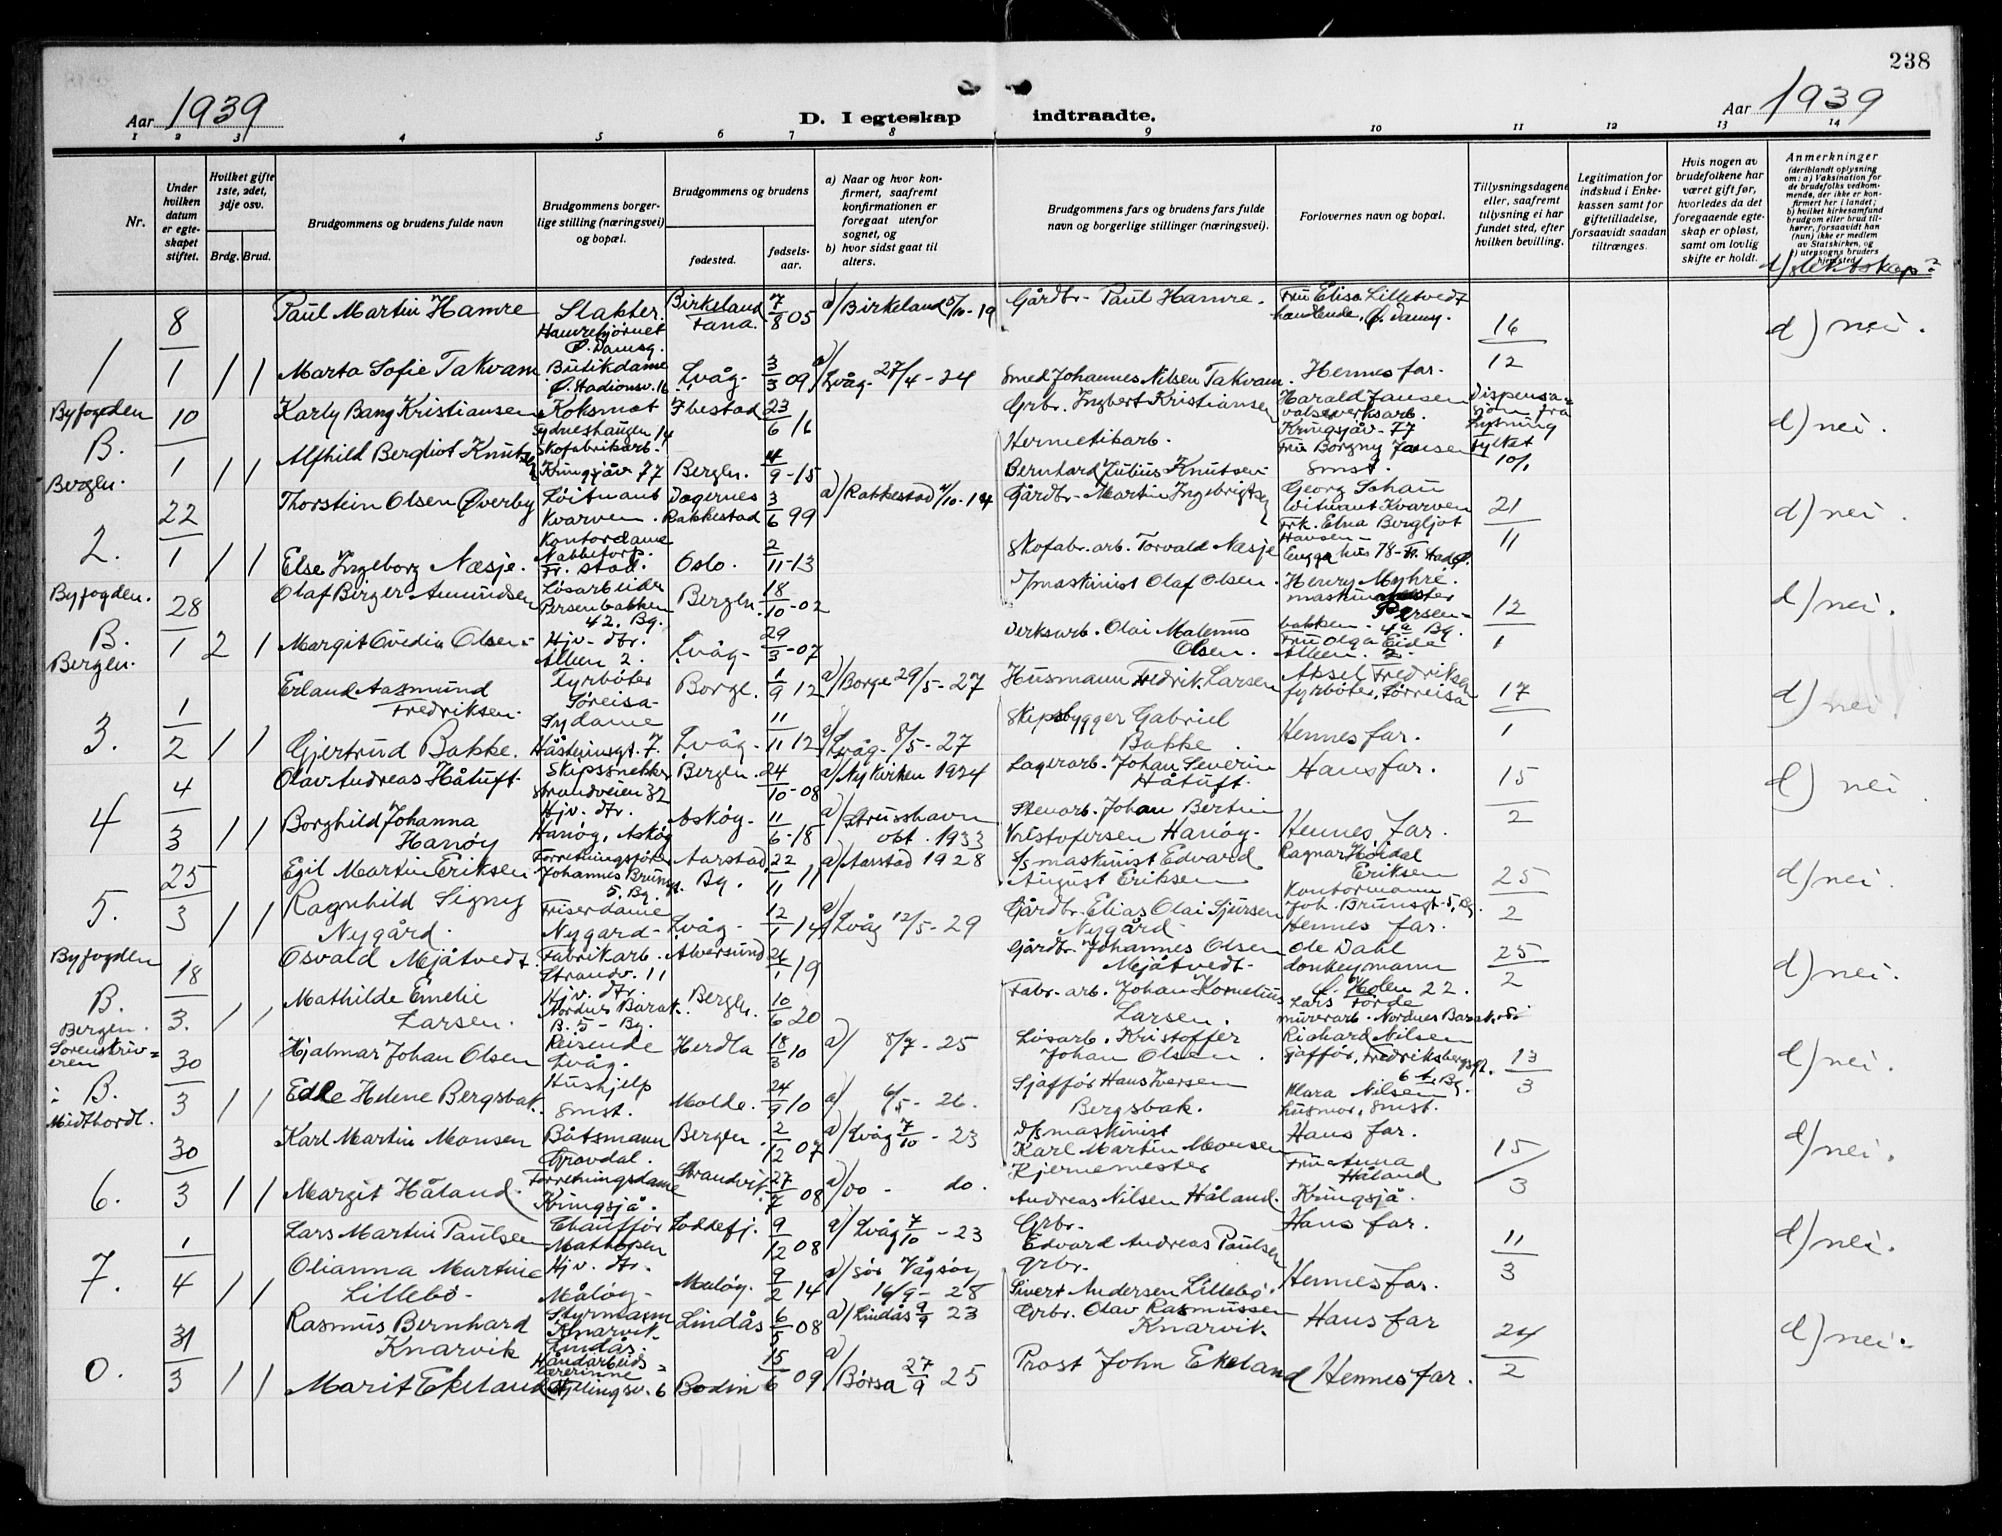 238
Aar 1939
D. I egteskap indtraadte.
Aar 1939
1 2 3 4 5 6 7 8 9 10 11 12 13 14
Nr.
Under hvilken datum er egteskapet stiftet.
Hvilket gifte 1ste, 2det, 3dje osv.
Brdg. Brud.
Brudgommens og brudens fulde navn
Brudgommens borgerlige stilling (næringsvei) og bopæl.
Brudgommens og brudens
fødested.
fødselsaar.
a) Naar og hvor konfirmert, saafremt konfirmationen er foregaat utenfor sognet, og
b) hvor sidst gaat til alters.
Brudgommens fars og brudens fars fulde navn og borgerlige stillinger (næringsvei).
Forlovernes navn og bopæl.
Tillysningsdagene eller, saafremt tillysning ei har fundet sted, efter hvilken bevilling.
Legitimation for indskud i Enkekassen samt for giftetilladelse, forsaavidt saadan tiltrænges.
Hvis nogen av brudefolkene har været gift før, hvorledes da det foregaaende egteskap er opløst, samt om lovlig skifte er holdt.
Anmerkninger
(deriblandt oplysning om: a) Vaksination for de brudefolks vedkommende, der ikke er konfirmert her i landet; b) hvilket kirkesamfund brudgom eller brud tilhører, forsaavidt han (hun) ikke er medlem av Statskirken, og
d/ slektskap?
1 8/1 1 1
Paul Martin Hamre Slakter. Hamrehjørnet Ø. Damsg. Birkeland Fana. 7/8 05 a) Birkeland 5/10-19 Gårdbr. Paul Hamre. Fru Elisa Lilletvedt handlende, Ø. Damsg. 16/12 d) nei.
Marta Sofie Takvam Butikdame Ø. Stadionsv. 16 Lvåg. 3/3 09 a) Lvåg. 27/4-24 Smed Johannes Nilsen Takvam. Hennes far.
Byfogden B. Bergen. 10/1 1 1
Karly Bang Kristiansen Koksmat Sydneshaugen 14 Ibestad 23/6 16 Grbr. Ingbert Kristiansen Harald Jansen valseverksarb. Kringsjåv. 77 Dispensasjon fra lysning Fylket 10/1 d) nei.
Alfhild Bergliot Knutsen Skofabrikarb. Kringsjåv 77 Bergen. 4/9-15 Hermetikarb. Bernhard Julius Knutsen Fru Borgny Jansen Smst.
2. 22/1 1 1
Thorstein Olsen Øverby Løitnant Kvarven. Degernes Rakkestad 3/6 99 a) Rakkestad 4/10-14 Gårdbr. Martin Ingebrigtsen Georg Schau løitnant Kvarven 21/11 d) nei.
Else Ingeborg Næsje. Kontordame Nabbetorp. Fr. stad. Oslo. 2/11-13 Skofabr. arb. Torvald Næsje Frk. Elna Bergljot Hansen
Byfogden. B. Bergen. 28/1 2 1
Olaf Birger Amundsen Løsarbeider Persenbakken 42. Bg. Bergen. 18/10-02 d/maskinist Olaf Olsen. Henry Myhre. maskinmester Persenbakken 4a Bg. 12/1 d) nei.
Margit Ovedia Olsen Hjv. dtr. Alleen 2. Lvåg. 29/3-07 Verksarb. Olai Malenius Olsen. Fru Olga Eide Alleen. 2.
3. 1/2 1 1
Erland Aasmund Fredriksen. Fyrbøter Søreisa Borge. 1/9 12 a) Borge 29/5-27 Husmann Fredrik Larsen Aksel Fredriksen fyrbøter, Sørreisa 17/1 d) nei.
Gjertrud Bakke. Sydame Håsteinsgt. 7. Lvåg. 11/11 12 a) Lvåg. 8/5-27 Skipsbygger Gabriel Bakke. Hennes far.
4 4/3 1 1
Olav Andreas Håtuft. Skipssnekker Strandveien 32 Bergen. 24/10-08 a) Nykirken 1924 Lagerarb. Johan Severin Håtuft. Hans far. 15/2 d) nei
Borghild Johanna Hanøy Hjv. dtr. Hanøy, Askøy Askøy. 11/6-18 a) Strusshavn okt. 1933 Stenarb. Johan Bertin Kristofersen Hanøy. Hennes far.
5. 25/3 1 1
Egil Martin Eriksen. Forretningsfører Johannes Brunsgt. 5. Bg. Aarstad Bg. 22/11 11 a) Aarstad 1928 S/S maskinist Edvard August Eriksen Ragnar Høidal Eriksen Kontormann Joh. Brunsgt. 5, Bg. 25/2 d) nei.
Ragnhild Signy Nygård. Friserdame Nygård. Lvåg. 12/1 14 a) Lvåg 12/5-29 Gårdbr. Elias Olai Sjursen Nygård. Hennes far.
Byfogden B. Bergen. 18/3. 1 1
Osvald Mjåtvedt. Fabrikarb. Strandv. 11 Alversund 26/1 19 Gårdbr. Johannes Olsen Mjåtvedt. Ole Dahl donkeymann Ø. Holen 22. 25/2 d) nei.
Mathilde Emelie Larsen. Hjv. dtr. Nordnes Barak. B. 5 - Bg. Bergen. 10/6 20 Fabr. arb. Johan Kornelius Larsen. Lars Førde murerarb. Nordnes Barak.
Sorenskriveren i B. Midthordl. 30/3 1 1
Hjalmar Johan Olsen Reisende Lvåg. Herdla 18/3 10 a) 8/7-25 Løsarb. Kristoffer Johan Olsen. Richard Nilsen sjåffør, Fredriksbergsgt. 6 Bg. 13/3 d) nei.
Edle Helene Bergsbak. Hushjelp Smst. Molde. 24/9 10 a) 6/5-26. Sjåffør Hans Iversen Bergsbak. Klara Nilsen husmor, Smst.
6. 30/3 1 1
Karl Martin Monsen Båtsmann Gravdal. Bergen. 2/12 07 a) Lvåg 7/10-23 D/S maskinist Karl Martin Monsen Hans far. 15/3 d) nei.
Margit Håland. Forretningsdame Kringsjå. Strandvik. 27/7 08 a) do - do. Kjernemester Andreas Nilsen Håland. Fru Anna Håland Kringsjå.
7. 1/4 1 1
Lars Martin Paulsen Chauffør Mathopen Loddefj. 9/12 08 a) Lvåg 7/10-23 Grbr. Edvard Andreas Paulsen Hans far. 11/3 d) nei.
Olianna Martine Lillebø. Hjv. dtr. Måløy. Måløy. 9/2 14 a) Sør Vågsøy 16/9-28 Grbr. Sivert Andersen Lillebø. Hennes far.
0. 31/3 1 1
Rasmus Bernhard Knarvik Styrmann Knarvik. Lindås. Lindås 6/5 08 a) Lindås 9/9 23 Grbr. Olav Rasmussen Knarvik. Hans far 24/2 d) nei.
Marit Ekeland Håndarbeidslærerinne Bodin 15/6 09 a) Børsa 27/9 25 Prost John Ekeland Hennes far.